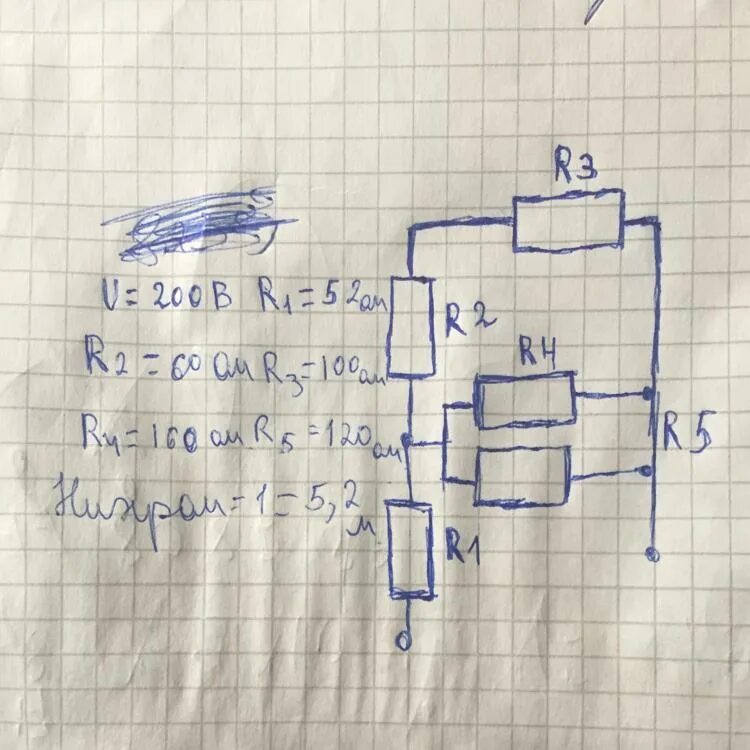 U = 200 В R1 = 52 ом
R2 = 60 ом R3 = 100 ом
R4 = 160 ом R5 = 120 ом
Нихром = l = 5,2 м
R3
R2
R4
R5
R1